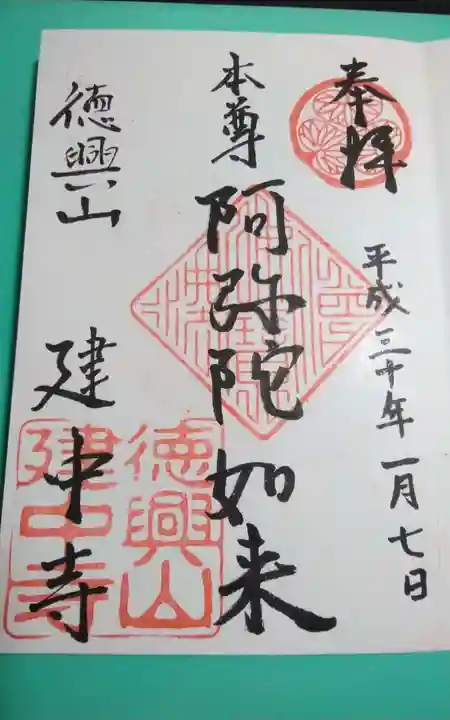 奉拝
平成三十年一月七日
本尊 阿弥陀如来
徳興山 建中寺
徳興山
建中寺